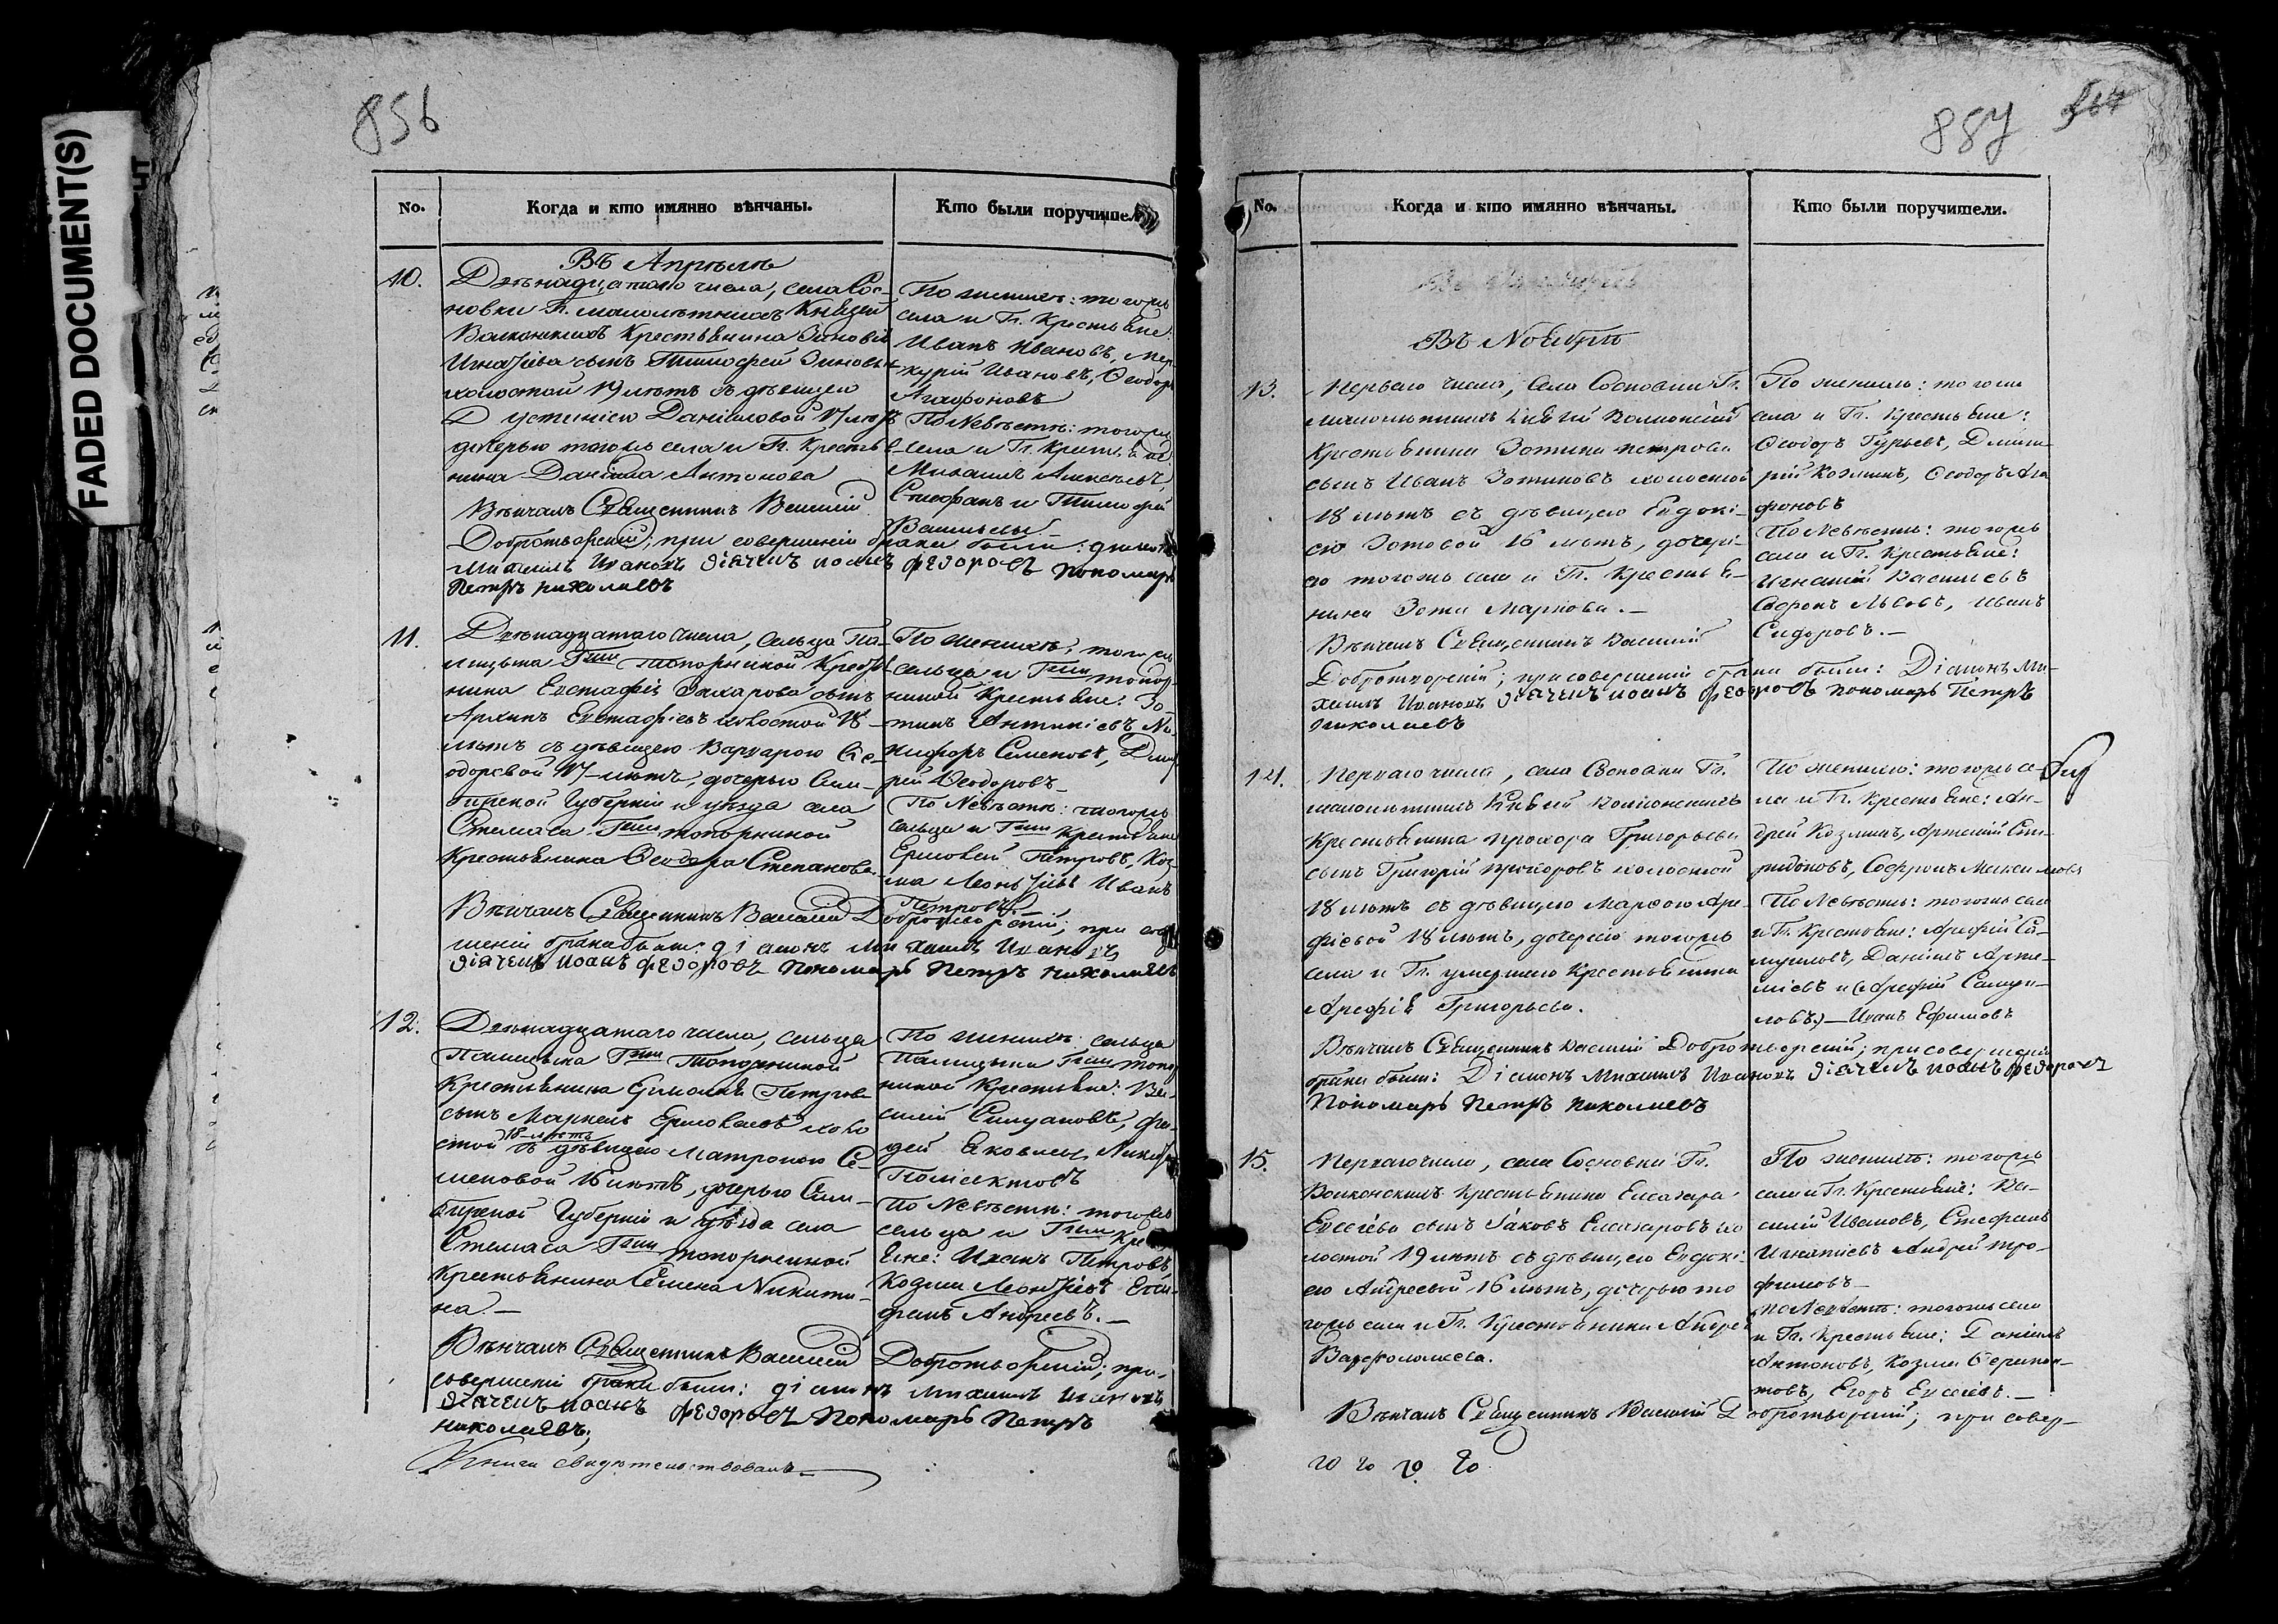 FADED DOCUMENT(S)
856
No.
Когда и кто имянно вѣнчаны.
Кто были поручител
Въ Апрѣлѣ
10.
Двѣнадцатаго числа, села Сос-
новки Гг. малолѣтнихъ Князей
Волконскихъ Крестьянина Зиновія
Игнатіева сынъ Тимофей Зиновьевъ
холостой 19 лѣтъ съ дѣвицею
Устиніею Даніиловой 17 лѣтъ
дочерью тогожъ села и Гг. Крестья-
нина Даніила Антонова
Вѣнчалъ Священникъ Василій
Добротворскій; при совершеніи брака были: діаконъ
Михаилъ Ивановъ діячекъ иоанъ федоровъ пономарь
Петръ николаевъ
По женихѣ: тогожъ
села и Гг. Крестьяне:
Иванъ Ивановъ, Мер-
курій Ивановъ, Ѳеодоръ
Агафоновъ
По Невѣстѣ: тогожъ
села и Гг. Крестьяне
Михаилъ Алексѣевъ,
Стефанъ и Тимофей
Васильевы
11.
Двѣнадцатаго числа, сельца Па-
ницына Гжи Топорниной Крестья-
нина Евстафія Захарова сынъ
Архипъ Евстафіевъ холостой 18-
лѣтъ съ дѣвицею Варварою Ѳе-
одоровой 17-лѣтъ, дочерью Сим-
бирской Губерніи и уѣзда села
Стемаса Гжи топорниной
Крестьянина Ѳеодора Степанова.
Вѣнчалъ Священникъ Василій Добротворскій; при сов
шеніи брака были: діаконъ Михаилъ Ивановъ
діячекъ иоанъ федоровъ Пономарь Петръ николаевъ
По женихѣ: тогожъ
сельца и Гжи топор-
ниной Крестьяне: Зо-
тикъ Антипіевъ Ни-
кифоръ Семеновъ, Дмит
рій Ѳеодоровъ
По Невѣстѣ: тогожъ
сельца и Гжи Крестьяне
Ермолай Петровъ, Коз-
ма Леонтіевъ Иванъ
Петровъ
12.
Двѣнадцатаго числа, сельца
Паницына Гжи Топорниной
Крестьянина Ермолая Петрова
сынъ Маркелъ Ермолаевъ холо
стой 18-лѣтъ съ дѣвицею Матроною Се-
меновой 16 лѣтъ, дочерью Сим-
бирской Губерніи и уѣзда села
Стемаса Гжи топорниной
Крестьянина Семена Никити-
на.—
Вѣнчалъ Священникъ Василій Добротворскій; при
совершеніи брака были: діаконъ Михаилъ Ивановъ
діячекъ иоанъ федоровъ Пономарь Петръ
николаевъ;
По женихѣ: сельца
Паницына Гжи топор
ниной Крестьяне: Ва-
силій Силуановъ, Фа-
дей Яковлевъ,
По Невѣстѣ: тогожъ
сельца и Гжи Кресть
яне: Иванъ Петровъ,
Козма Леонтіевъ Евсе-
Андреевъ.—
Книги свидѣтельствовалъ
887
No.
Когда и кто имянно вѣнчаны.
Кто были поручители.
Въ Ноябрѣ
13.
Перваго числа, Села Сосновки Гг.
малолѣтнихъ Князей Волконскихъ
Крестьянина Зотика петрова
сынъ Иванъ Зотиковъ холостой
18 лѣтъ съ дѣвицею Евдокі-
ею Зотовой 16 лѣтъ, дочері-
ю тогожъ села и Гг. Крестья-
нина Зота Маркова.—
Вѣнчалъ Священникъ Василій
Добротворскій; при совершеніи брака были: Діаконъ Ми-
хаилъ Ивановъ діячекъ иоанъ федоровъ пономарь Петръ
николаевъ
По женихѣ: тогожъ
села и Гг. Крестьяне:
Ѳеодоръ Гурьевъ, Дмит-
рій Козминъ, Ѳеодоръ Ага
фоновъ
По Невѣстѣ: тогожъ
села и Гг. Крестьяне:
Игнатій Васильевъ
Софронъ Львовъ, Иванъ
Сидоровъ.—
14.
Перваго числа, села Сосновки Гг.
малолѣтнихъ Князей Волконскихъ
Крестьянина прохора Григорьева
сынъ Григорій прохоровъ холостой
18 лѣтъ съ дѣвицею Марѳою Аре-
фіевой 18 лѣтъ, дочеріею тогожъ
села и Гг. умершаго Крестьянина
Арефія Григорьева.
Вѣнчалъ Священникъ Василій Добротворскій; при совершеніи
брака были: Діаконъ Михаилъ Ивановъ діячекъ иоанъ федоровъ
Пономарь Петръ николаевъ
По женихѣ: тогожъ се-
ла и Гг. Крестьяне: Ан-
дрей Козминъ, Артемій Спи-
ридоновъ, Софронъ Максимовъ
По Невѣстѣ: тогожъ села
и Гг. Крестьяне: Арефій Са-
муиловъ, Даніилъ Арте-
міевъ и (Арефій Самуи-
ловъ)— Иванъ Ефимовъ
15.
Перваго числа, села Сосновки Гг.
Волконскихъ Крестьянина Елеазара
Евсеіева сынъ Іаковъ Елеазаровъ хо
лостой 19 лѣтъ съ дѣвицею Евдокі-
ею Андреевой 16 лѣтъ, дочерью то
гожъ села и Гг. Крестьянина Андрея
Варфоломеева.
Вѣнчалъ Священникъ Василій Добротворскій; при совер-
По женихѣ: тогожъ
села и Гг. Крестьяне: Ва-
силій Ивановъ, Стефанъ
Игнатіевъ Андрей тро-
фимовъ—
По Невѣстѣ: тогожъ села
и Гг. Крестьяне: Даніилъ
Антоновъ, Козма
Егоръ Евсеіевъ.—